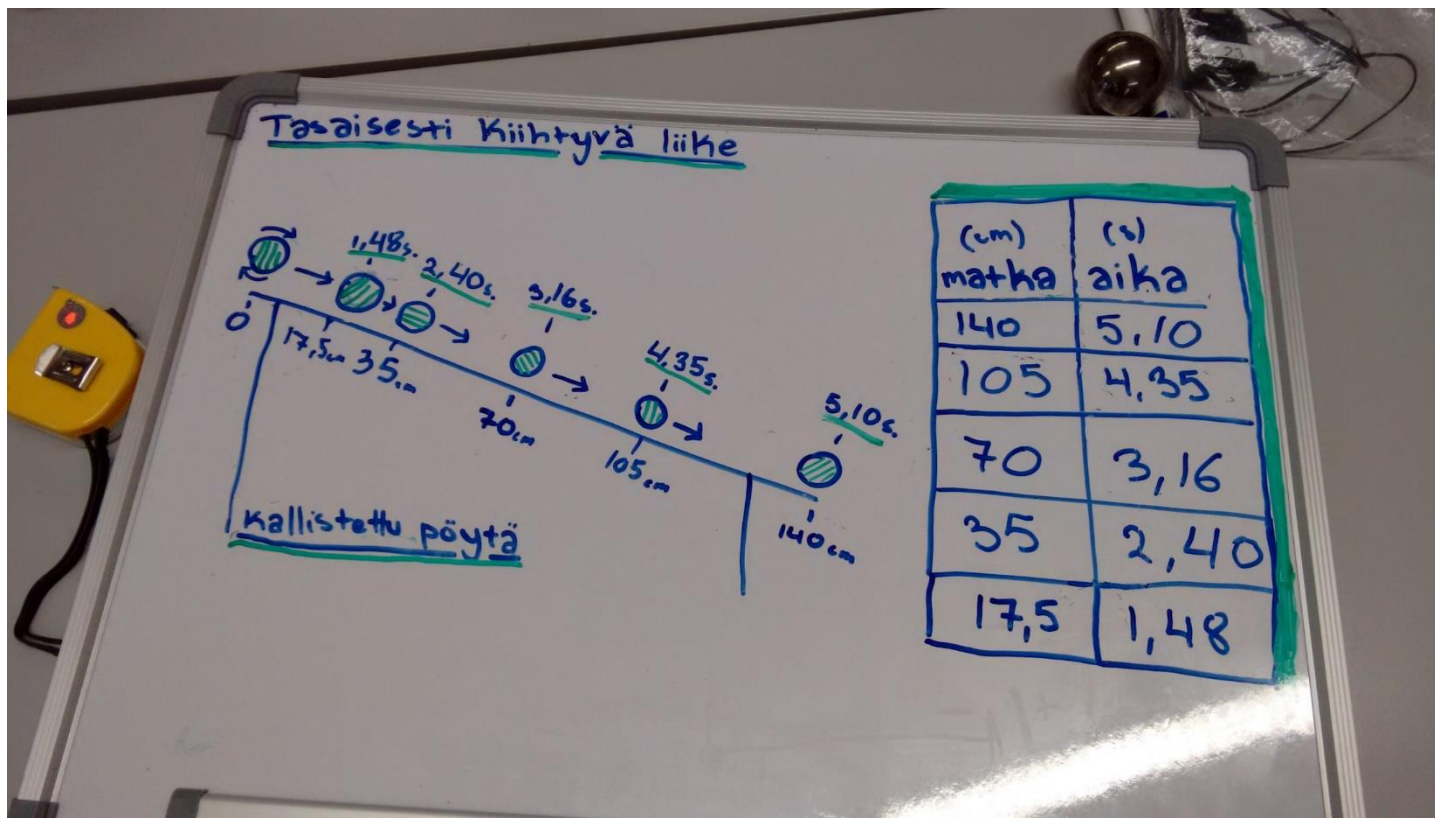 Tasaisesti Kiihtyvä liike
1,48s.
2,40s.
3,16s.
4,35s.
5,10s.
0
17,5cm
35cm
70cm
105cm
140cm
Kallistettu pöytä
(cm) (s)
matka aika
140 5,10
105 4,35
70 3,16
35 2,40
17,5 1,48
23